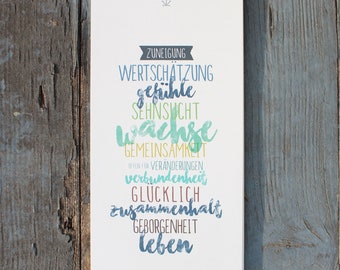 ZUNEIGUNG
WERTSCHÄTZUNG
gefühle
SEHNSUCHT
wachse
GEMEINSAMKEIT
OFFEN FÜR VERÄNDERUNGEN
verbundenheit
GLÜCKLICH
zusammenhalt
GEBORGENHEIT
leben